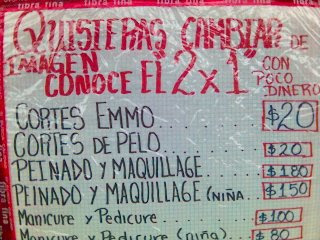 fibra fina fibra fina fibra fina
QUISIERAS CAMBIAR DE
IMAGEN CON
CONOCE El 2x1 POCO
DINERO
CORTES EMMO.......... $20
CORTES DE PELO........ $20
PEINADO Y MAQUILLAGE.... $180
PEINADO Y MAQUILLAGE (NIÑA... $150
Manicure y Pedicure....... $100
Manicure y Pedicure (niña)..... $80